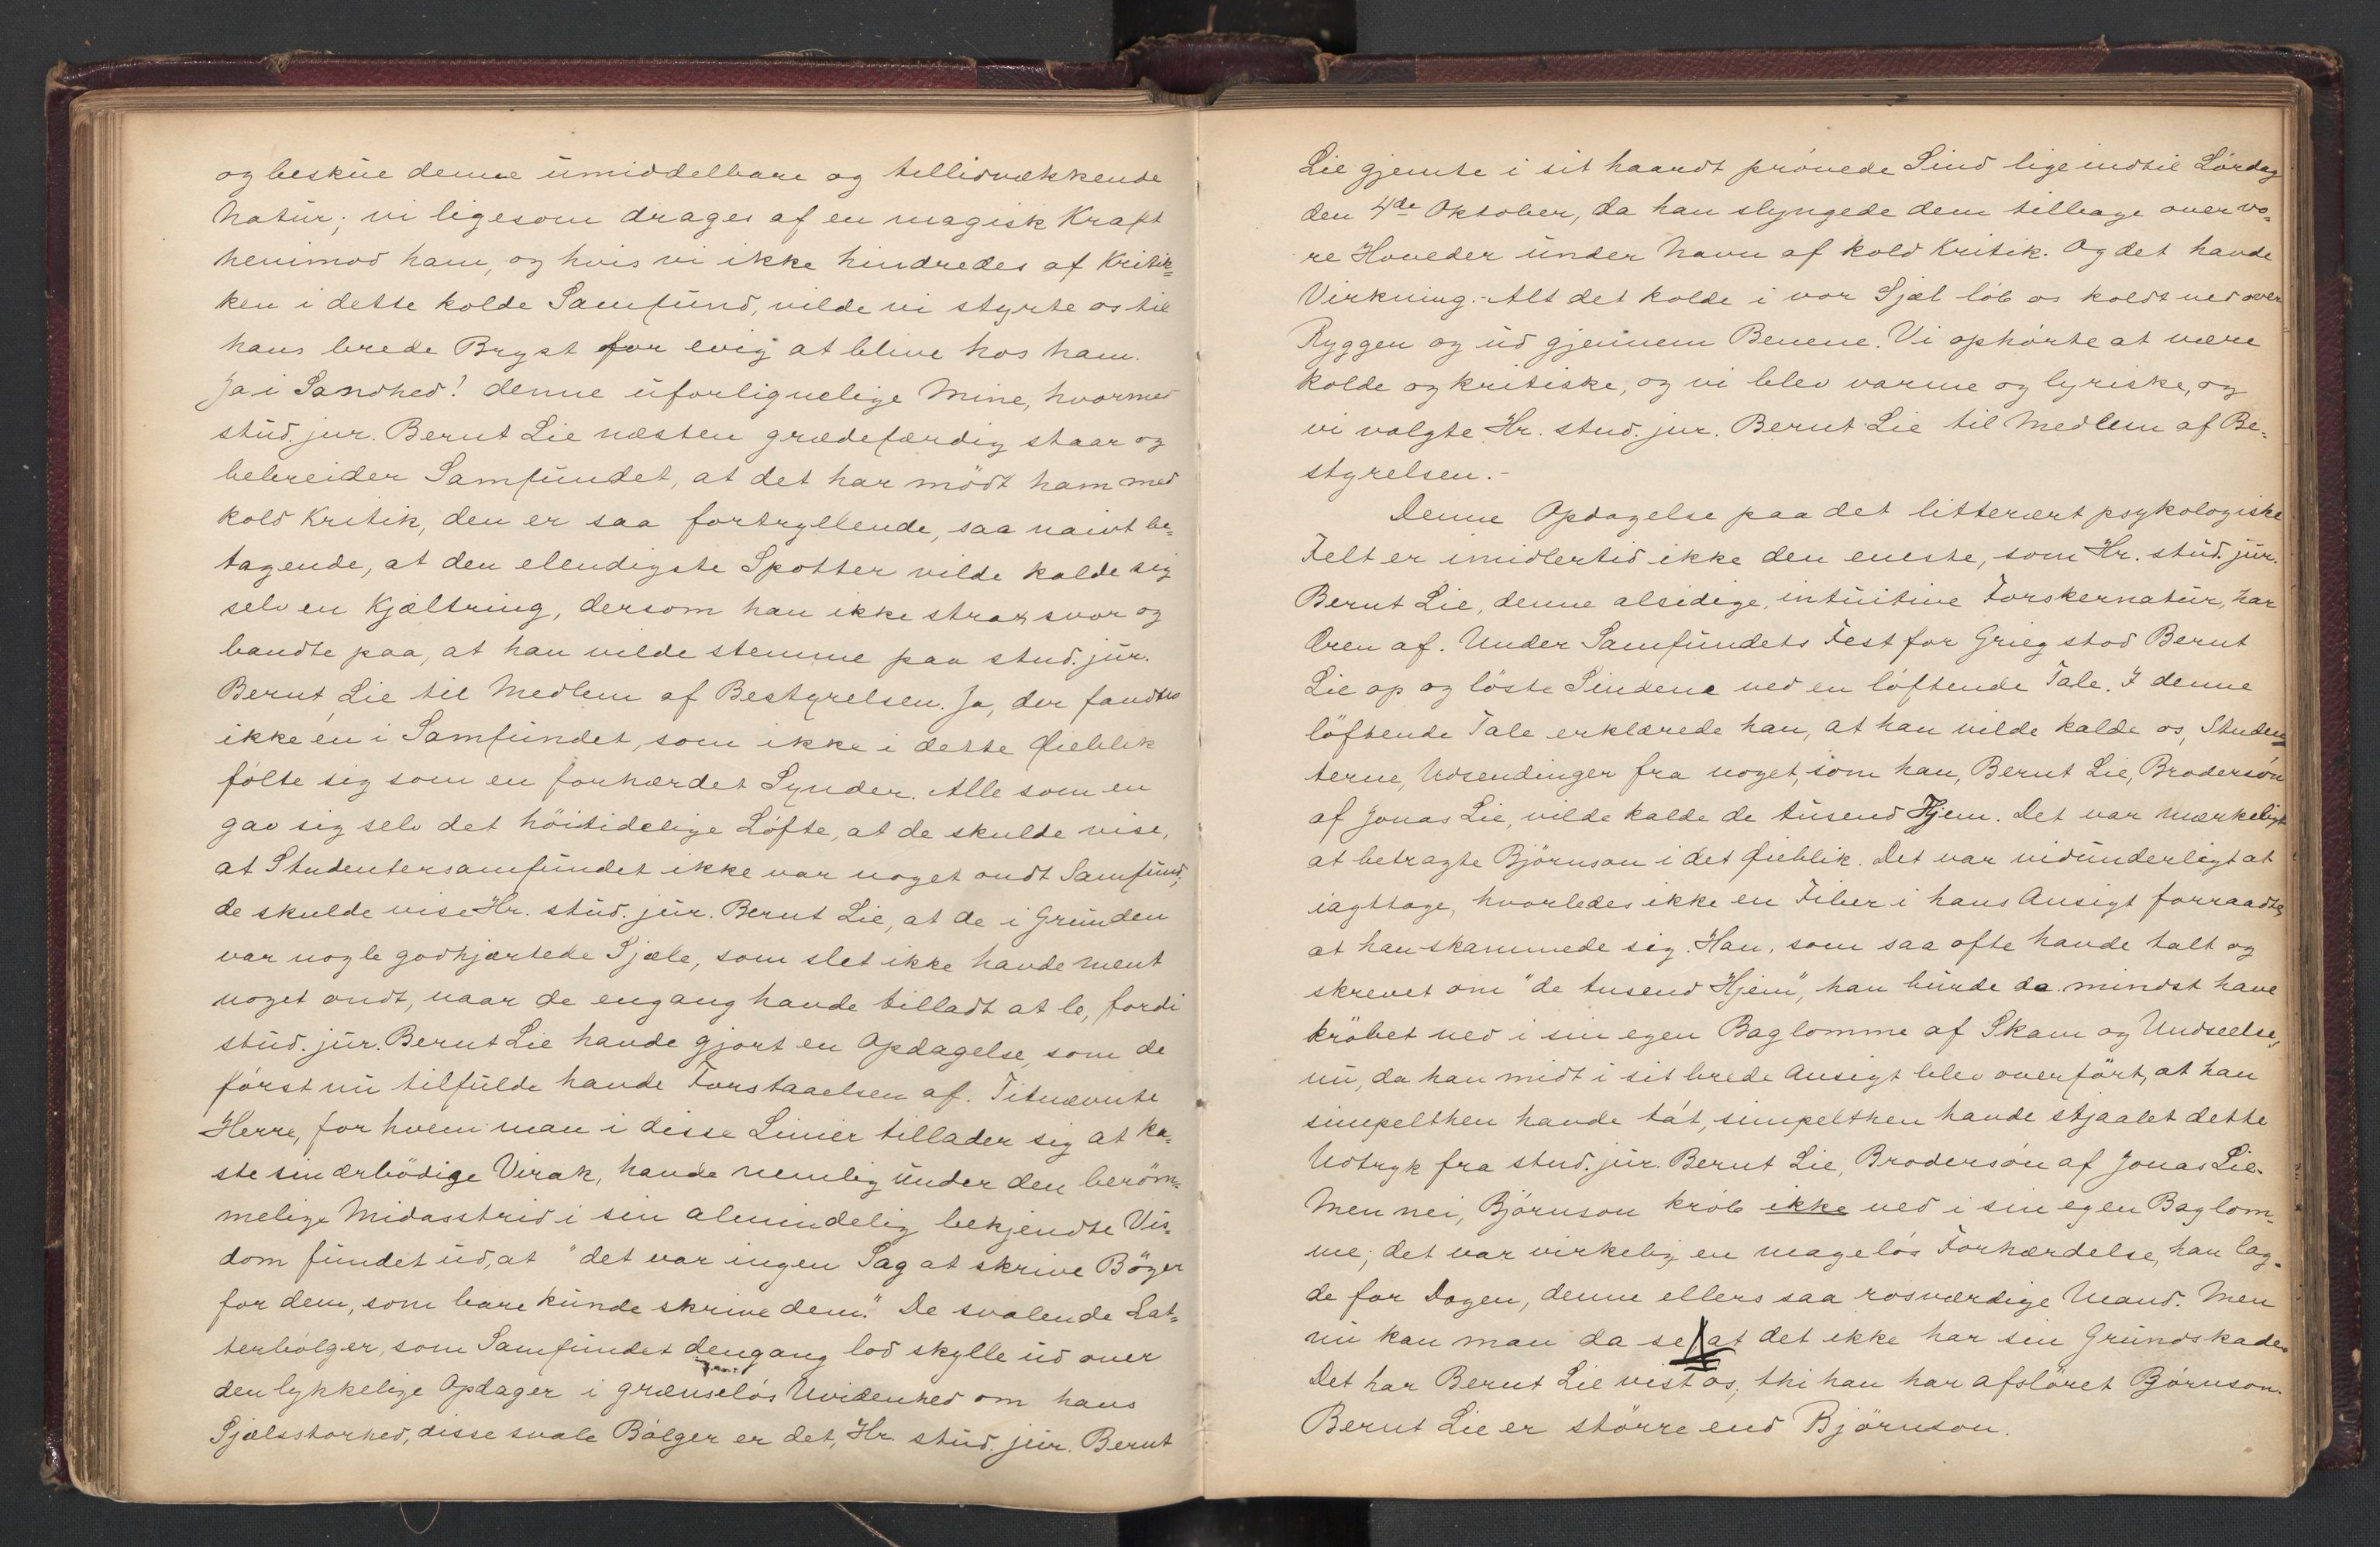 og beskue denne umiddelbare og tillidvækkende
Natur; vi ligesom drages af en magisk Kraft
henimod ham, og hvis vi ikke hindredes af Kritik=
ken i dette kolde Samfund, vilde vi styrte os til
hans brede Bryst for evig at blive hos ham.
Ja i Sandhed! denne uforlignelige Mine, hvormed
stud. jur. Bernt Lie næsten grædefærdig staar og
bebreider Samfundet, at det har mödt ham med
kold Kritik, den er saa fortryllende, saa naivt be=
tagende, at den elendigste Spotter vilde kalde sig
selv en Kjæltring, dersom han ikke strax svor og
bandte paa, at han vilde stemme paa stud. jur.
Bernt Lie til Medlem af Bestyrelsen. Ja, der fandtes
ikke én i Samfundet, som ikke i dette Øieblik
fölte sig som en forhærdet Synder. Alle som en
gav sig selv det höitidelige Löfte, at de skulde vise,
at Studentersamfundet ikke var noget ondt Samfund;
de skulde vise Hr. stud. jur. Bernt Lie, at de i Grunden
var nogle godhjærtede Sjæle, som slet ikke havde ment
noget ondt, naar de engang havde tilladt at le, fordi
stud. jur. Bernt Lie havde gjort en Opdagelse, som de
först nu tilfulde havde Forstaaelsen af. Titnævnte
Herre, for hvem man i disse Linier tillader sig at ka=
ste sin ærbödige Virak, havde nemlig under den beröm=
melige Midasstrid i sin almindelig bekjendte Vis=
dom fundet ud, at "det var ingen Sag at skrive Böger
for dem, som bare kunde skrive dem." De svalende Lat=
terbölger, som Samfundet dengang lod skylle ud over
den lykkelige Opdager i grænselös Uvidenhed om hans
Sjælsstorhed, disse svale Bölger er det, Hr. stud. jur. Bernt
Lie gjemte i sit haardt prövede Sind lige indtil Lördag
den 4de Oktober, da han slyngede dem tilbage over vo=
re Hoveder under Navn af kold Kritik. Og det havde
Virkning. - Alt det kolde i vor Sjæl löb os koldt ned over
Ryggen og ud gjennem Benene. Vi ophörte at være
kolde og kritiske, og vi blev varme og lyriske, og
vi valgte Hr. stud. jur. Bernt Lie til Medlem af Be=
styrelsen. -
Denne Opdagelse paa det litterært psykologiske
Felt er imidlertid ikke den eneste, som Hr. stud. jur.
Bernt Lie, denne alsidige, intuitive Forskernatur, har
Æren af. Under Samfundets Fest for Grieg stod Bernt
Lie op og löste Sindene ved en löftende Tale. I denne
löftende Tale erklærede han, at han vilde kalde os, Studen=
terne, Udsendinger fra noget, som han, Bernt Lie, Brodersön
af Jonas Lie, vilde kalde de tusend Hjem. Det var mærkeligt
at betragte Björnson i det Øieblik. Det var vidunderligt at
iagttage, hvorledes ikke en Fiber i hans Ansigt forraadte,
at han skammede sig. Han, som saa ofte havde talt og
skrevet om "de tusend Hjem", han burde da mindst have
kröbet ned i sin egen Baglomme af Skam og Undseelse,
nu, da han midt i sit brede Ansigt blev overfört, at han
simpelthen havde ta't, simpelthen havde stjaalet dette
Udtryk fra stud. jur. Bernt Lie, Brodersön af Jonas Lie.
Men nei, Björnson kröb ikke ned i sin egen Baglom=
me; det var virkelig en magelös Forhærdelse, han lag=
de for Dagen, denne ellers saa rosværdige Mand. Men
nu kan man da se at det ikke har sin Grundskade.
Det har Bernt Lie vist os; thi han har afslöret Björnson.
Bernt Lie er större end Björnson.